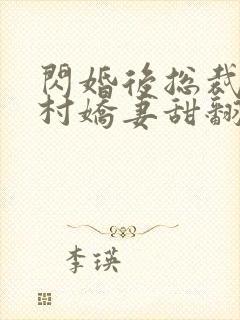 閃婚後總裁
村嬌妻甜翻
李瑛